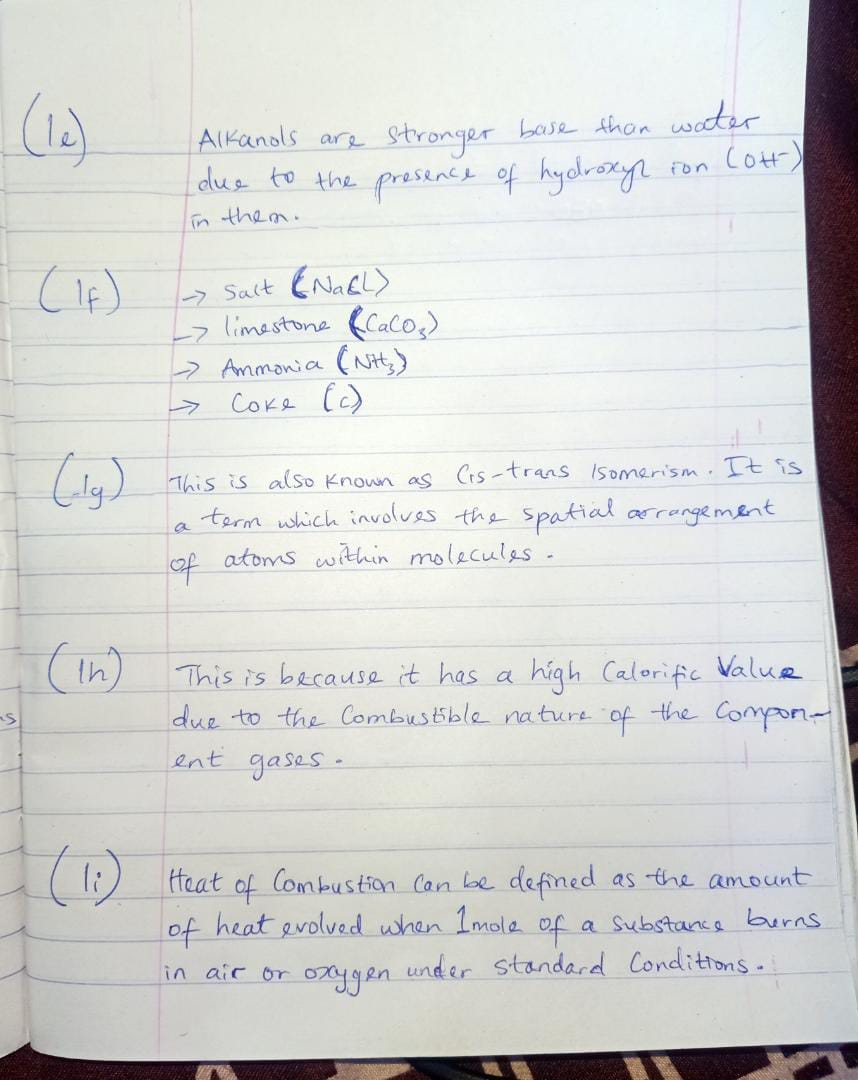 (1e) Alkanols are stronger base than water
due to the presence of hydroxyl ion (OH-)
in them.
(1f) → Salt (NaCl)
→ limestone (CaCO₃)
→ Ammonia (NH₃)
→ Coke (C)
(1g) This is also known as Cis-trans Isomerism. It is
a term which involves the spatial arrangement
of atoms within molecules.
(1h) This is because it has a high Calorific Value
due to the Combustible nature of the Compon-
ent gases.
(1i) Heat of Combustion Can be defined as the amount
of heat evolved when 1mole of a substance burns
in air or oxygen under standard Conditions.